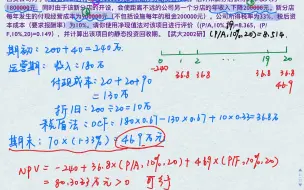 600000元，同时由于该新分店的开设，会使距离不远的公司另一个分店的年收入下降200000元。新分店
每年发生的付现经营成本为200000元（不包括设施每年的租金200000元）。公司所得税率为33%，税后资
本成本（要求报酬率）为10%。请你使用净现值法对该项目进行评价（P/A,10%,19)=8.365, (P/
F,10%,20)=0.149），并计算该项目的静态投资回收期。【武大2002研】 (P/A,10%,20)=8.514.
期初: 200+40=240万
运营期: 收入: 180万
付现成本: 20+20+90
=130万
折旧: 200÷20=10万
税后法: OCF: 180×0.67-130×0.67+10×0.33=36.8万
期末: 70×(1-33%)=46.9万元
NPV=-240+36.8×(P/A,10%,20)+46.9×(P/F,10%,20)
=80.3033万元>0 可行
0 1 2 19 20
-240 36.8 36.8 36.8 36.8
46.9